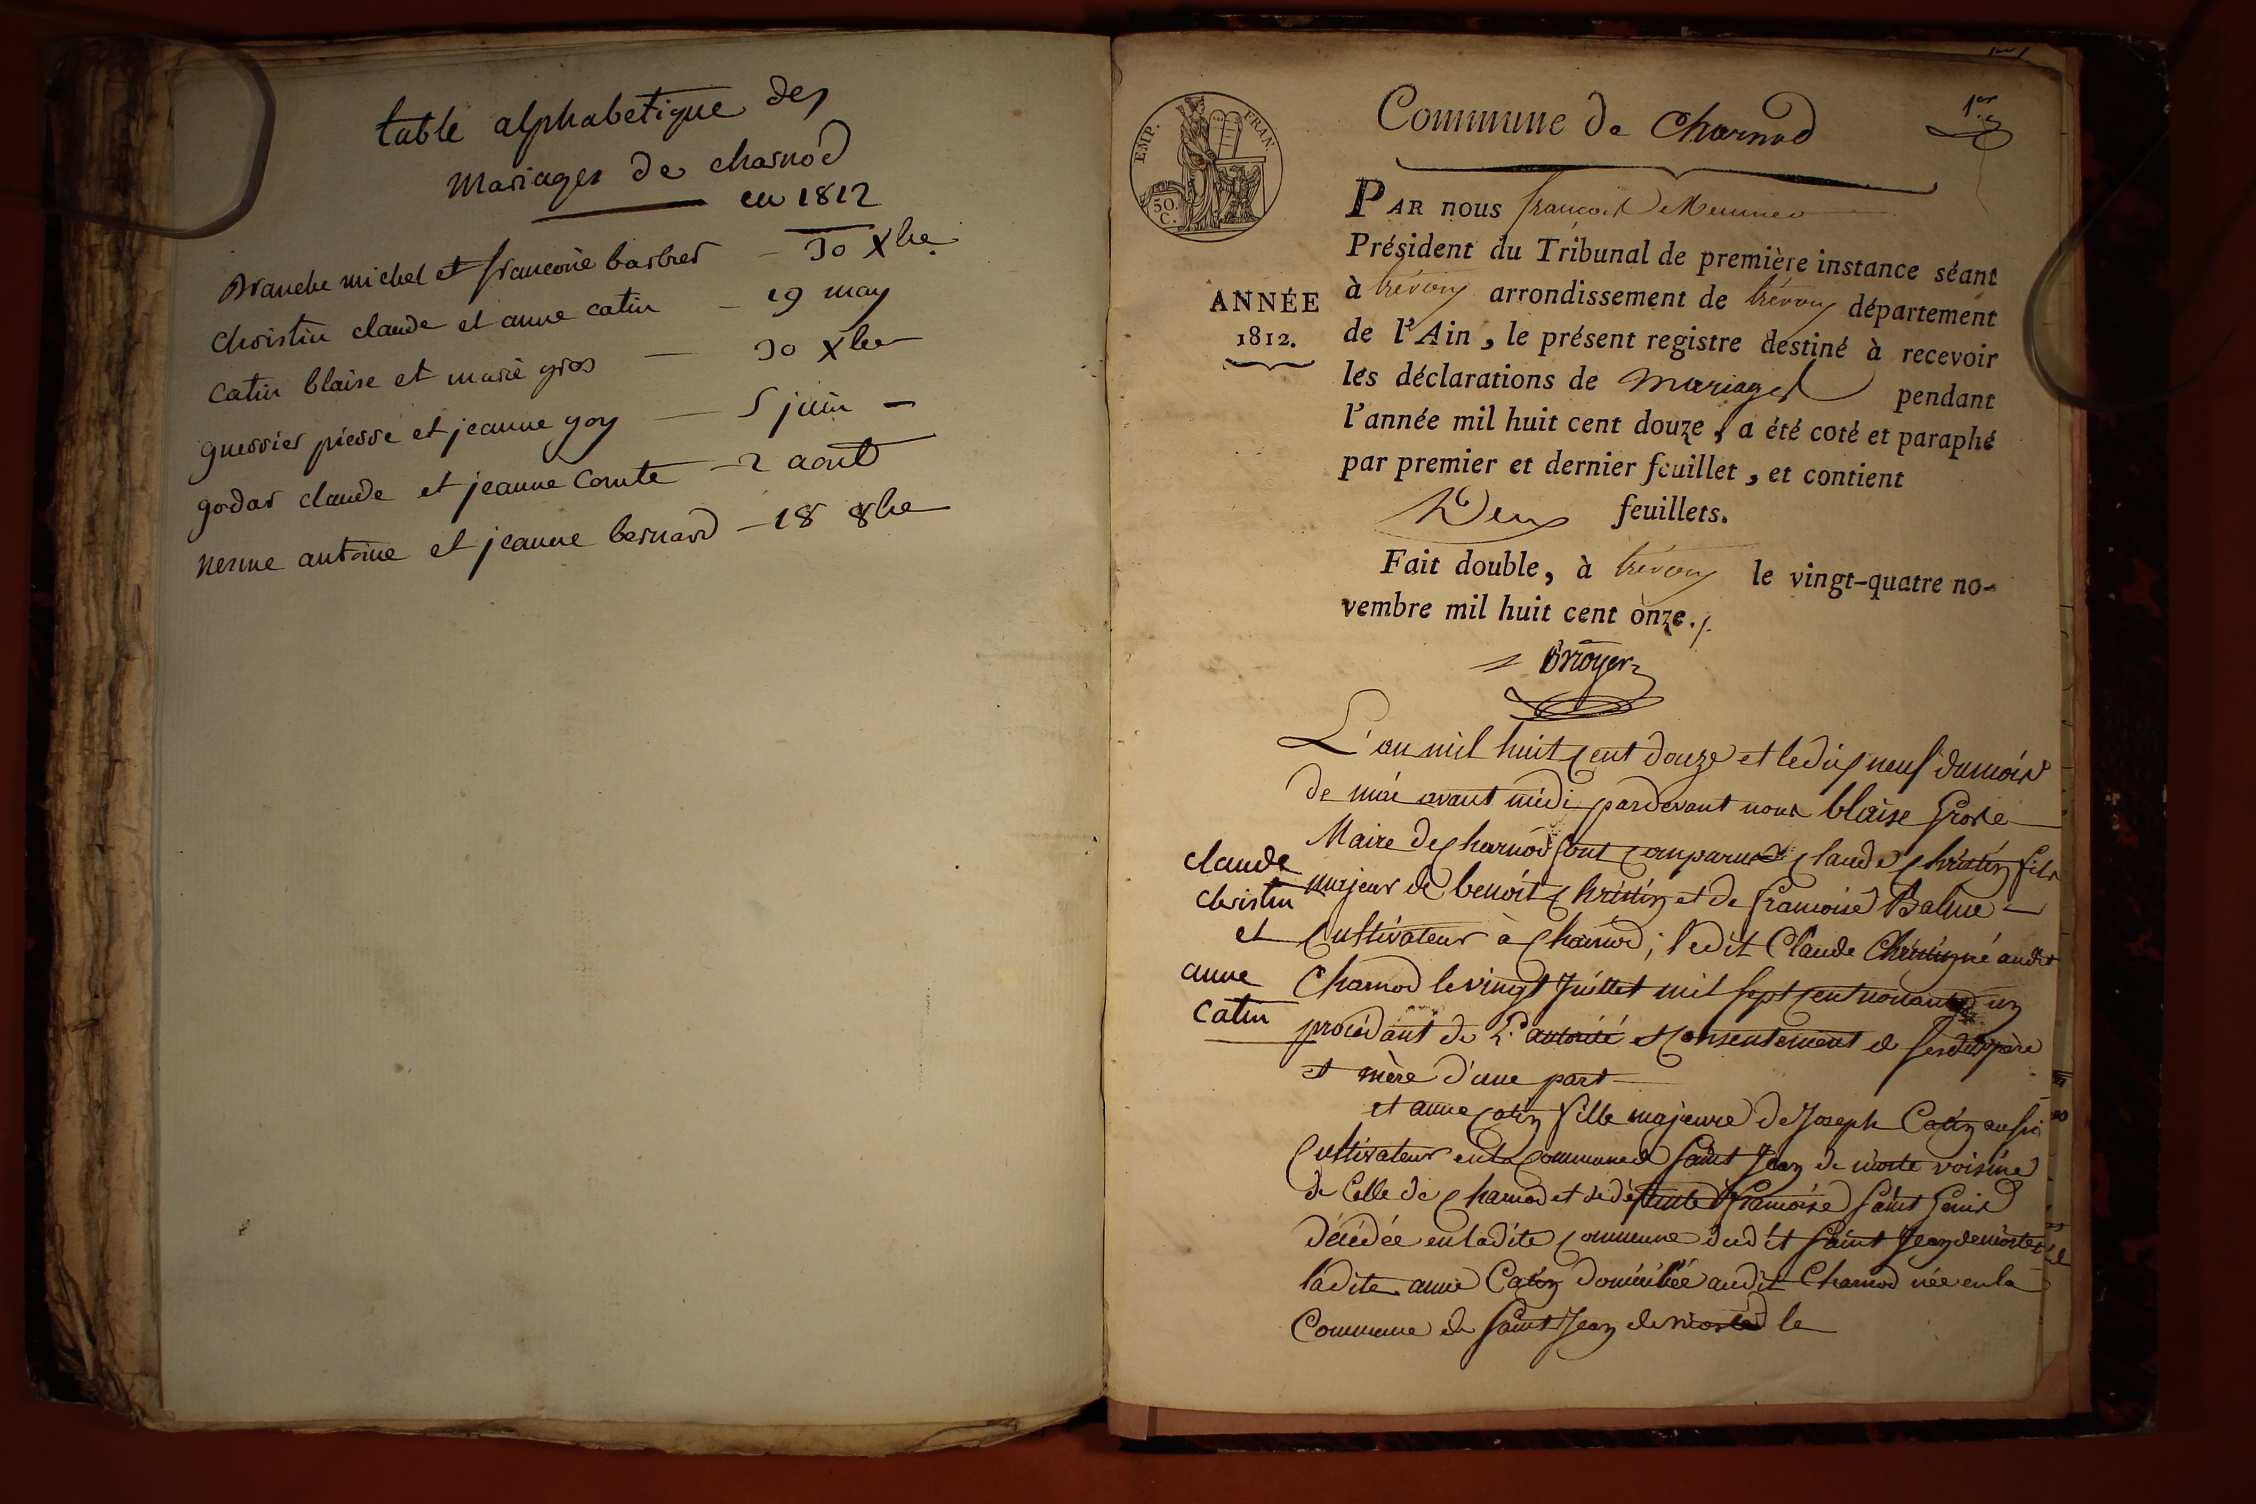 table alphabetique des
mariages de charnod
en 1812
branche michel et francoise barbier - 30 Xbre
christin claude et anne catin - 19 may
catin blaise et marie gros - 30 Xbre
guerrier pierre et jeanne goy - 5 juin -
godar claude et jeanne comte - 2 aout
nerme antoine et jeanne bernard - 18 8bre
1er
Commune de charnod
EMP. FRAN.
50.
C.
PAR nous françois
Président du Tribunal de première instance séant
à trévoux arrondissement de trévoux département
ANNÉE
1812.
de l'Ain, le présent registre destiné à recevoir
les déclarations de mariages pendant
l'année mil huit cent douze, a été coté et paraphé
par premier et dernier feuillet, et contient
Deux feuillets.
Fait double, à trévoux le vingt-quatre no-
vembre mil huit cent onze./.
Broyer
L'an mil huit cent douze et le dix neuf du mois
de mai avant midi pardevant nous blaise
Maire de charnod sont comparus claude christin fils
claude
christin
et
anne
catin
majeur de benoit christin et de francoise Balme
Cultivateur à charnod; ledit Claude Christin né audit
Charnod le vingt Juillet mil sept cent nonante un
procédant de l'autorité et consentement de ses dits père
et mère d'une part
et anne catin fille majeure de Joseph Catin aussi
Cultivateur en la commune de saint Jean de voisine
de celle de charnod et de défunte francoise saint
décédée en ladite commune dudit saint Jean
ladite anne Catin domiciliée audit Charnod née en la
Commune de saint Jean le